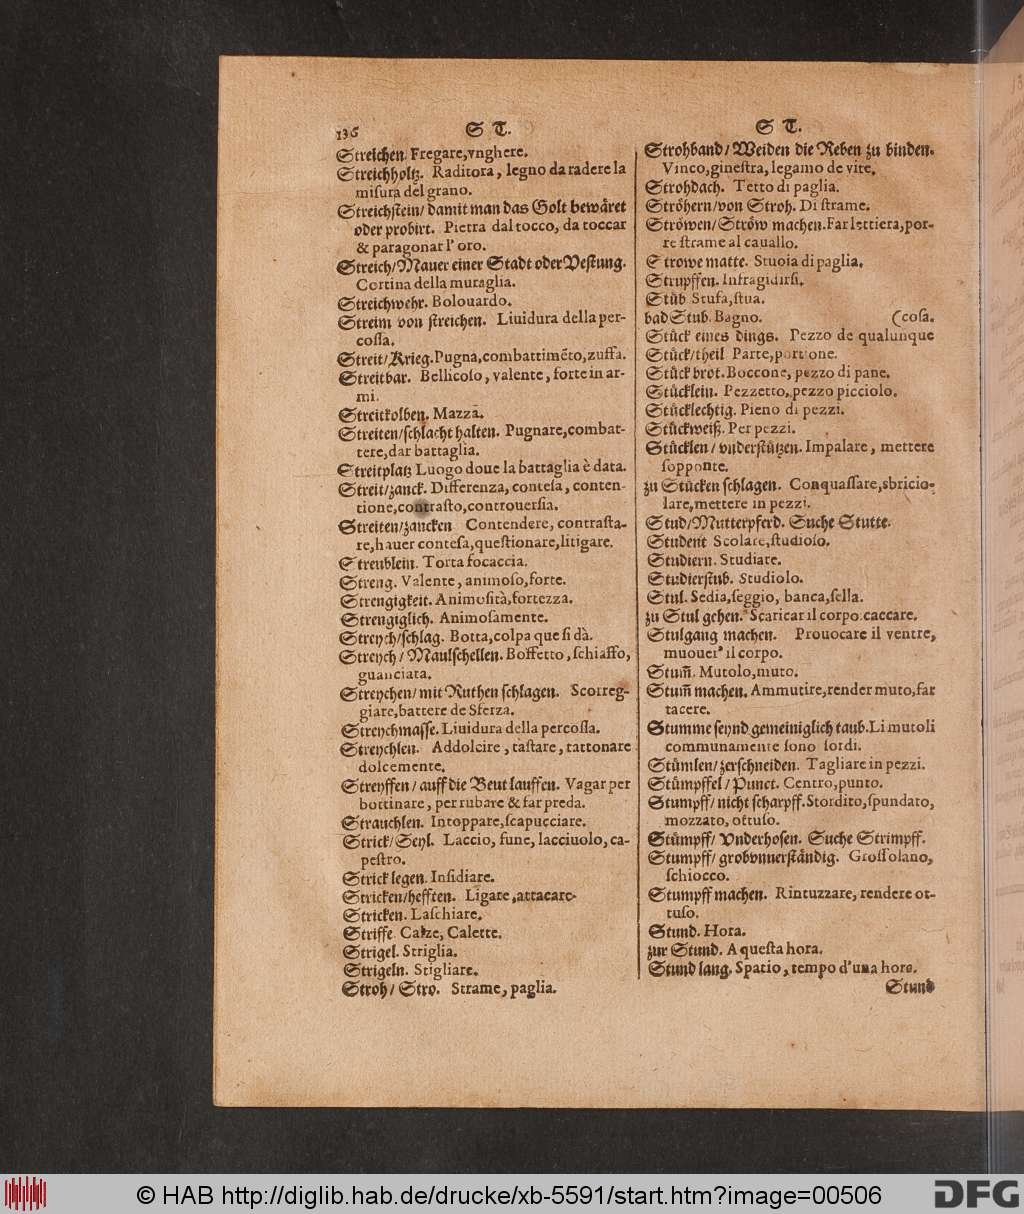 136
S T.
Streichen. Fregare,vnghere.
Streichholtz. Raditora, legno da radere la
misura del grano.
Streichstein/ damit man das Golt bewåret
oder probirt. Pietra dal tocco, da toccar
& paragonar l' oro.
Streich/Mauer einer Stadt oder Vestung.
Cortina della muraglia.
Streichwehr. Bolouardo.
Streim von streichen. Liuidura della per-
cossa.
Streit/Krieg.Pugna,combattimẽto,zuffa.
Streitbar. Bellicoso, valente, forte in ar-
mi.
Streitkolben. Mazza.
Streiten/schlacht halten. Pugnare,combat-
tere,dar battaglia.
Streitplatz Luogo doue la battaglia è data.
Streit/zanck. Differenza, contesa, conten-
tione,contrasto,controuersia.
Streiten/zancken Contendere, contrasta-
re,hauer contesa,questionare,litigare.
Streublein. Torta focaccia.
Streng. Valente, animoso,forte.
Strengigkeit. Animosità,fortezza.
Strengiglich. Animosamente.
Streych/schlag. Botta,colpa que si dà.
Streych / Maulschellen. Boffetto, schiaffo,
guanciata.
Streychen/ mit Ruthen schlagen. Scorreg-
giare,battere de Sferza.
Streychmasse. Liuidura della percossa.
Streychlen. Addolcire, tastare, tattonare
dolcemente.
Streyffen / auff die Beut lauffen. Vagar per
bottinare, per rubare & far preda.
Strauchlen. Intoppare,scapucciare.
Strick/ Seyl. Laccio, fune, lacciuolo, ca-
pestro.
Strick legen. Insidiare.
Stricken/hefften. Ligare,attacare.
Stricken. Laschiare.
Striffe. Calze, Calette.
Strigel. Striglia.
Strigeln. Stigliare.
Stroh/ Stro. Strame, paglia.
S T.
Strohband/ Weiden die Reben zu binden.
Vinco,ginestra,legamo de vite.
Strohdach. Tetto di paglia.
Ströhern/von Stroh. Di strame.
Ströwen/Ströw machen.Far lettiera,por-
re strame al cauallo.
Strowe matte. Stuoia di paglia.
Strupffen. Infragidirsi.
Stůb Stufa,stua.
bad Stub. Bagno. (cosa.
Stůck eines dings. Pezzo de qualunque
Stůck/theil Parte,portione.
Stůck brot.Boccone, pezzo di pane.
Stůcklein. Pezzetto,pezzo picciolo.
Stůcklechtig. Pieno di pezzi.
Stůckweiß. Per pezzi.
Stůcklen/ vnderstůtzen. Impalare, mettere
sopponte.
zu Stůcken schlagen. Conquassare,sbricio-
lare,mettere in pezzi.
Stud/Mutterpferd. Suche Stutte.
Student Scolare,studioso.
Studiern. Studiare.
Studierstub. Studiolo.
Stul. Sedia,seggio, banca,sella.
zu Stul gehen. Scaricar il corpo caccare.
Stulgang machen. Prouocare il ventre,
muouer' il corpo.
Stum̃. Mutolo,muto.
Stum̃ machen. Ammutire,render muto,far
tacere.
Stumme seynd gemeiniglich taub.Li mutoli
communamente sono sordi.
Stůmlen/ zerschneiden. Tagliare in pezzi.
Stůmpffel/ Punct. Centro,punto.
Stumpff/ nicht scharpff.Stordito,spundato,
mozzato, ottuso.
Stůmpff/ Vnderhosen. Suche Strimpff.
Stumpff/ grobvnuerståndig. Grossolano,
schiocco.
Stumpff machen. Rintuzzare, rendere ot-
tuso.
Stund. Hora.
zur Stund. A questa hora.
Stund lang. Spatio, tempo d'una hora.
Stund
© HAB http://diglib.hab.de/drucke/xb-5591/start.htm?image=00506
DFG